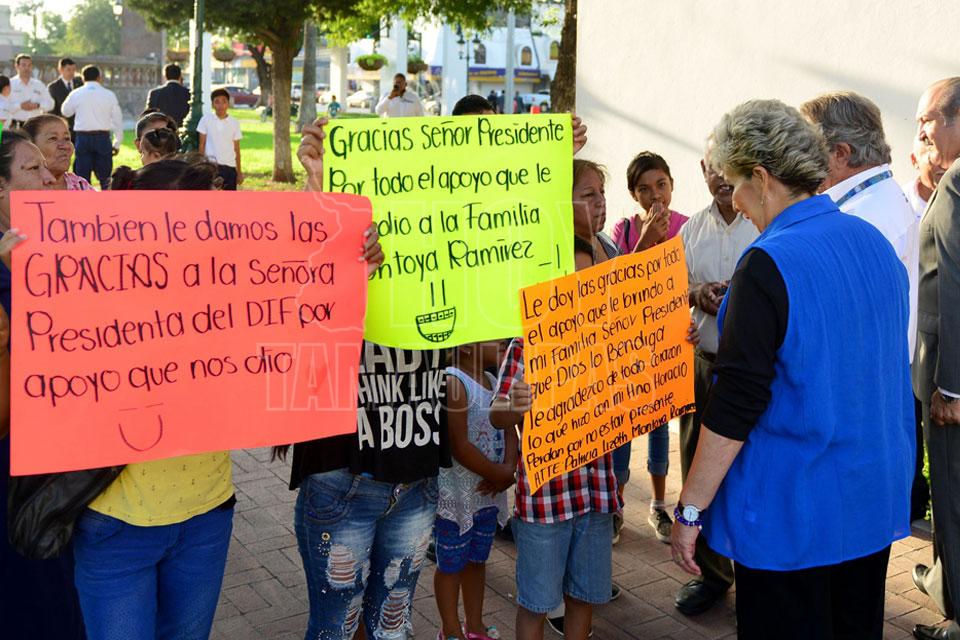 También le damos las
GRACIAS a la Señora
Presidenta del DIF por
apoyo que nos dio
Gracias Señor Presidente
Por todo el apoyo que le
dio a la Familia
ntoya Ramírez
Le doy las gracias por todo
el apoyo que le brindo a
mi Familia Señor Presidente
que Dios lo Bendiga
le agradezco de todo corazón
lo que hizo con mi Hino Horacio
Perdan por no estar presente
ATTE Patricia Lizeth Montoya Ramírez
THINK LIKE
A BOSS
HOY
TAM